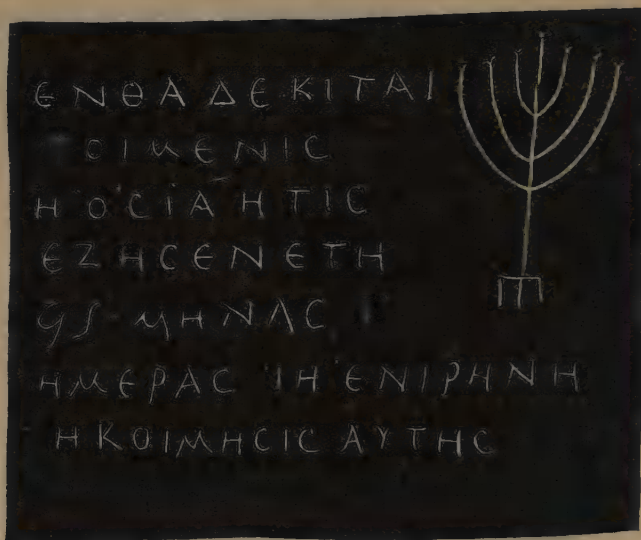 ΕΝΘΑΔΕΚΙΤΑΙ
ΟΙΜΕΝΙϹ
ΗΟϹΙΑΗΤΙϹ
ΕΖΗϹΕΝΕΤΗ
ΜΗΝΑϹ
ΗΜΕΡΑϹ ΙΗ ΕΝΙΡΗΝΗ
ΗΚΟΙΜΗϹΙϹ ΑΥΤΗϹ